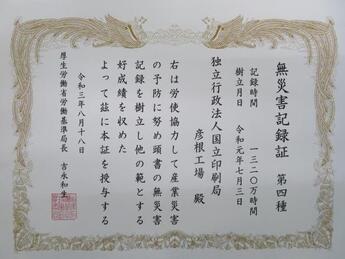 無災害記録証　第四種
記録時間　一三二〇万時間
樹立月日　令和元年七月三日
独立行政法人国立印刷局
彦根工場　殿
右は労使協力して産業災害
の予防に努め頭書の無災害
記録を樹立し他の範とする
好成績を収めた
よって茲に本証を授与する
令和三年八月十八日
厚生労働省労働基準局長　吉永和生